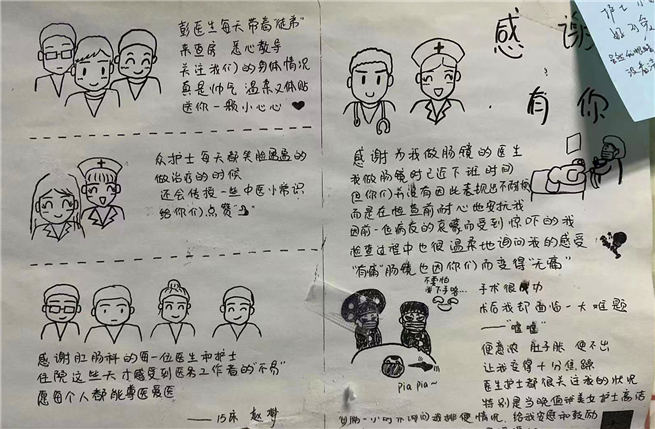 彭医生每天带着"徒弟"
来查房 悉心教导
关注我们的身体情况
真是帅气 温柔又体贴
送你一颗小心心
众护士每天都笑脸盈盈的
做治疗的时候
还会传授一些中医小常识
给你们点赞
感谢肛肠科的每一位医生和护士
住院这些天才感受到医务工作者的"不易"
愿每个人都能尊医爱医
——15床
感谢
有你
感谢为我做肠镜的医生
我做肠镜时已近下班时间
但你们并没有因此表现出不耐烦
而是在检查前耐心地安抚我
因前一位病友的哀嚎而受到惊吓的我
检查过程中也很温柔地询问我的感受
"有痛"肠镜也因你们而变得"无痛"
不要怕
pia pia~
手术很成功
术后我却面临一大难题
——"嘘嘘"
便意浓 肚子胀 便不出
让我变得十分焦躁
医生护士都很关注我的状况
特别是当晚值班美女护士高洁
每隔一小时来询问我排便情况,给我安慰和鼓励
护士小